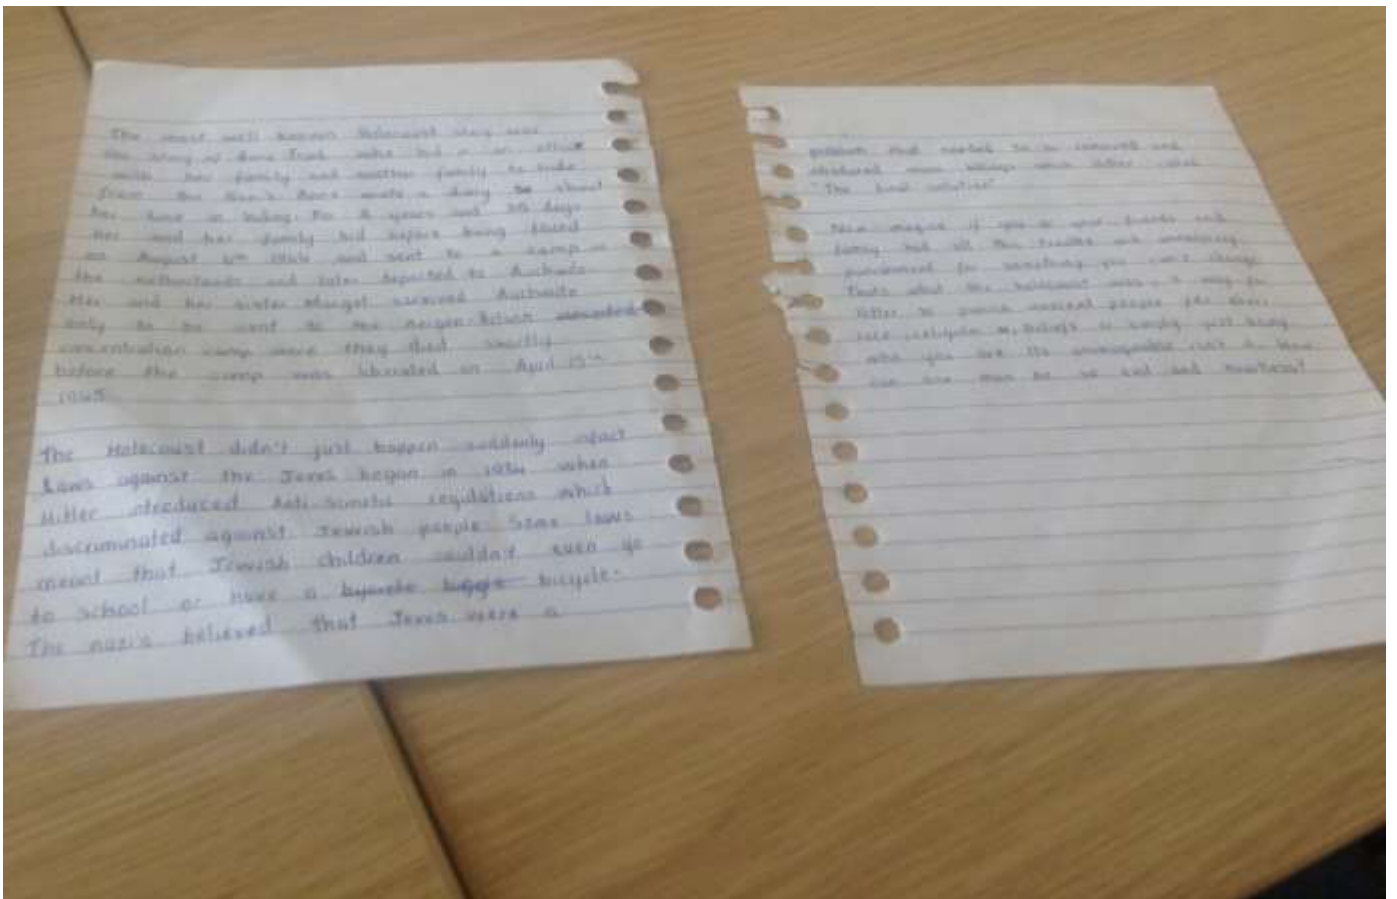 The most well known Holocaust story was
the story of Anne Frank who hid in an attic
with her family and another family to hide
from the Nazi's Anne wrote a diary about
her time in hiding. For 2 years and days
her and her family hid before being found
on August 4th 1944 and sent to a camp in
the netherlands and later deported to
Her and her sister Margot survived
only to be sent to the Bergen-Belsen
concentration camp were they died shortly
before the camp was liberated on April 15th
1945.
The Holocaust didn't just happen suddenly infact
Laws against the Jews began in when
Hitler introduced Anti-Semitic legislations which
discriminated against Jewish people Some laws
meant that Jewish children couldn't even go
to school or have a bicycle.
The nazi's believed that Jews were a
problem that needed to be removed and
what Hitler called
"The final solution"
Now imagine if you or your friends and
family had all this and
punishment for something you can't change
Thats what the holocaust was, a way for
Hitler to punish people for their
race, religion or simply just being
who you are Its unimaginable isn't it. How
can one man be so and heartless?